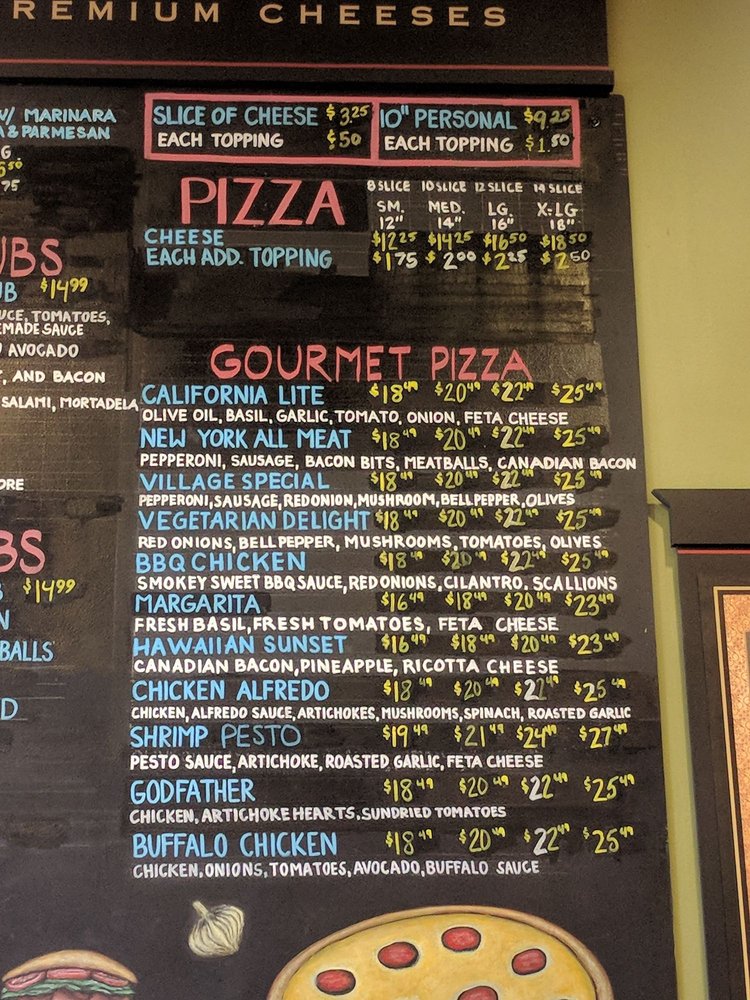 REMIUM CHEESES
W/ MARINARA
& PARMESAN
SLICE OF CHEESE $3.25
EACH TOPPING $.50
10" PERSONAL $9.25
EACH TOPPING $1.50
PIZZA
8 SLICE 10 SLICE 12 SLICE 14 SLICE
SM. MED. LG. X-LG
12" 14" 16" 18"
CHEESE $12.25 $14.25 $16.50 $18.50
EACH ADD. TOPPING $1.75 $2.00 $2.25 $2.50
UBS
UB $14.99
UCE, TOMATOES,
EMADE SAUCE
AVOCADO
, AND BACON
SALAMI, MORTADELA
ORE
BS
$14.99
N
BALLS
D
GOURMET PIZZA
CALIFORNIA LITE $18.49 $20.49 $22.49 $25.49
OLIVE OIL, BASIL, GARLIC, TOMATO, ONION, FETA CHEESE
NEW YORK ALL MEAT $18.49 $20.49 $22.49 $25.49
PEPPERONI, SAUSAGE, BACON BITS, MEATBALLS, CANADIAN BACON
VILLAGE SPECIAL $18.49 $20.49 $22.49 $25.49
PEPPERONI, SAUSAGE, RED ONION, MUSHROOM, BELL PEPPER, OLIVES
VEGETARIAN DELIGHT $18.49 $20.49 $22.49 $25.49
RED ONIONS, BELL PEPPER, MUSHROOMS, TOMATOES, OLIVES
BBQ CHICKEN $18.49 $20.49 $22.49 $25.49
SMOKEY SWEET BBQ SAUCE, RED ONIONS, CILANTRO, SCALLIONS
MARGARITA $16.49 $18.49 $20.49 $23.49
FRESH BASIL, FRESH TOMATOES, FETA CHEESE
HAWAIIAN SUNSET $16.49 $18.49 $20.49 $23.49
CANADIAN BACON, PINEAPPLE, RICOTTA CHEESE
CHICKEN ALFREDO $18.49 $20.49 $22.49 $25.49
CHICKEN, ALFREDO SAUCE, ARTICHOKES, MUSHROOMS, SPINACH, ROASTED GARLIC
SHRIMP PESTO $19.49 $21.49 $24.49 $27.49
PESTO SAUCE, ARTICHOKE, ROASTED GARLIC, FETA CHEESE
GODFATHER $18.49 $20.49 $22.49 $25.49
CHICKEN, ARTICHOKE HEARTS, SUNDRIED TOMATOES
BUFFALO CHICKEN $18.49 $20.49 $22.49 $25.49
CHICKEN, ONIONS, TOMATOES, AVOCADO, BUFFALO SAUCE